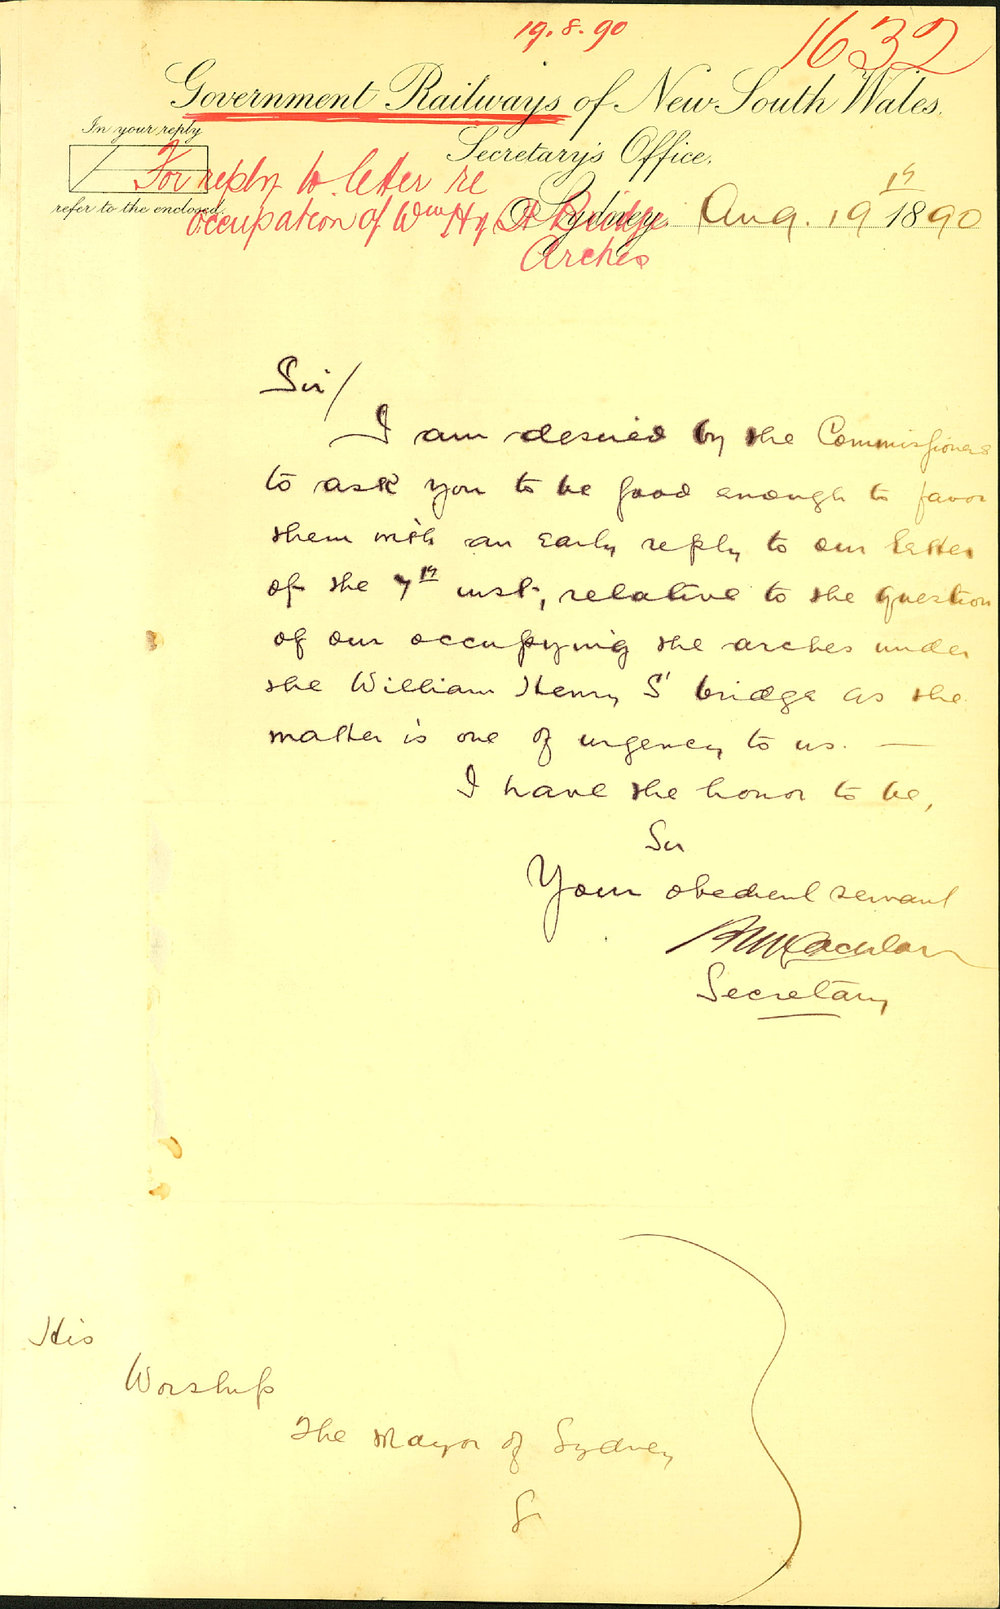 19.8.90
1632
Government Railways of New South Wales.
In your reply
refer to the enclosed.
Secretary's Office,
For reply to letter re
occupation of Wm Hy St Bridge
Arches
Sydney Aug. 19th 1890
Sir/
I am desired by the Commissioners
to ask you to be good enough to favor
them with an early reply to our letter
of the 7th inst, relative to the question
of our occupying the arches under
the William Henry St bridge as the
matter is one of urgency to us. —
I have the honor to be,
Sir
Your obedient servant
Secretary
His
Worship
The Mayor of Sydney